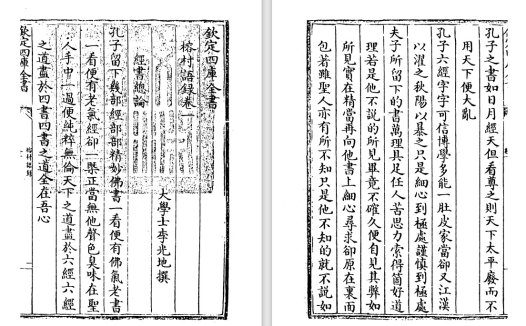 欽定四庫全書
榕村語錄卷一
大學士李光地撰
經書總論
孔子留下幾部經部部精妙佛書一看便有佛氣老書
一看便有老氣經卻一槩正當無他聲色臭味在聖
人手中一過便純粹無倫天下之道盡於六經六經
之道盡於四書四書之道全在吾心
欽定四庫全書
榕村語錄
孔子之書如日月經天但看尊之則天下太平廢而不
用天下便大亂
孔子六經字字可信博學多能一肚皮家當卻又江漢
以濯之秋陽以暴之只是細心到極處謹慎到極處
夫子所留下的書萬理具足任人苦思力索得箇好道
理若是他不說的所見畢竟不確久便自見其弊如
所見實在精當再向他書上細心尋求卻原在裏面
包着雖聖人亦有所不知只是他不知的就不說如